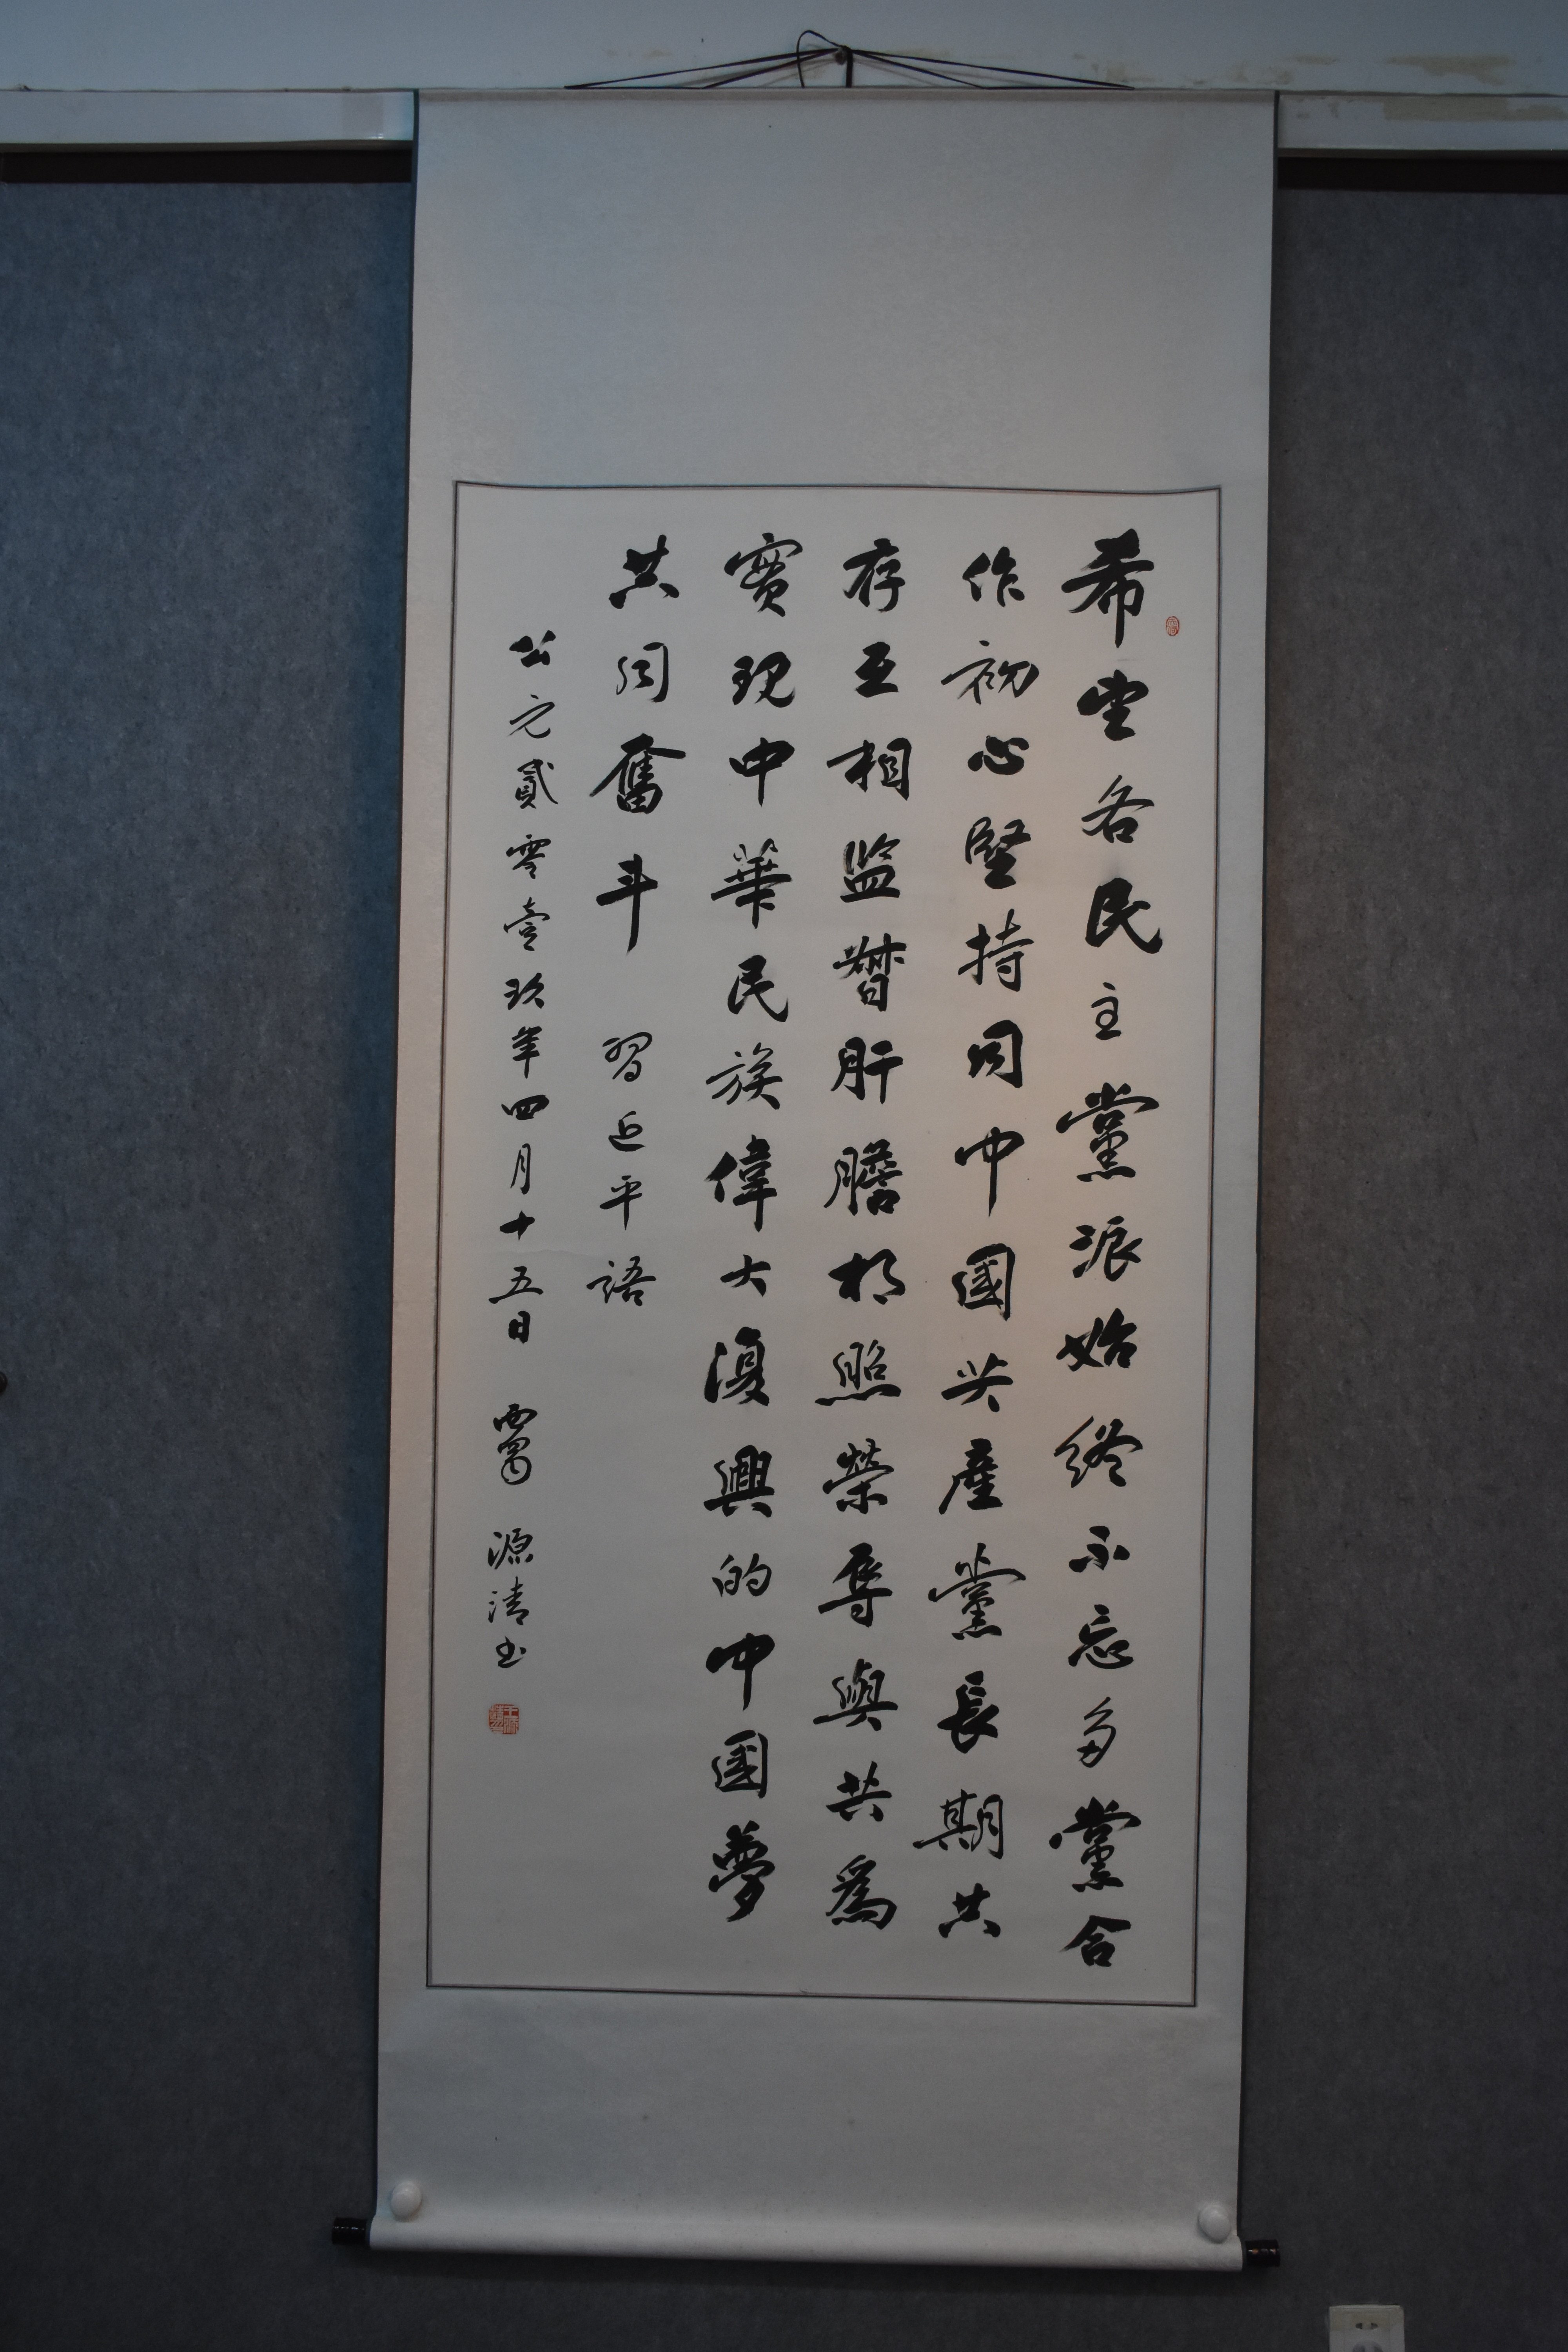 希望各民主黨派始終不忘多黨合
作初心堅持同中國共產黨長期共
存互相监督肝膽相照榮辱與共爲
實現中華民族偉大復興的中國夢
共同奮斗 習近平語
公元貳零壹玖年四月十五日 源清书